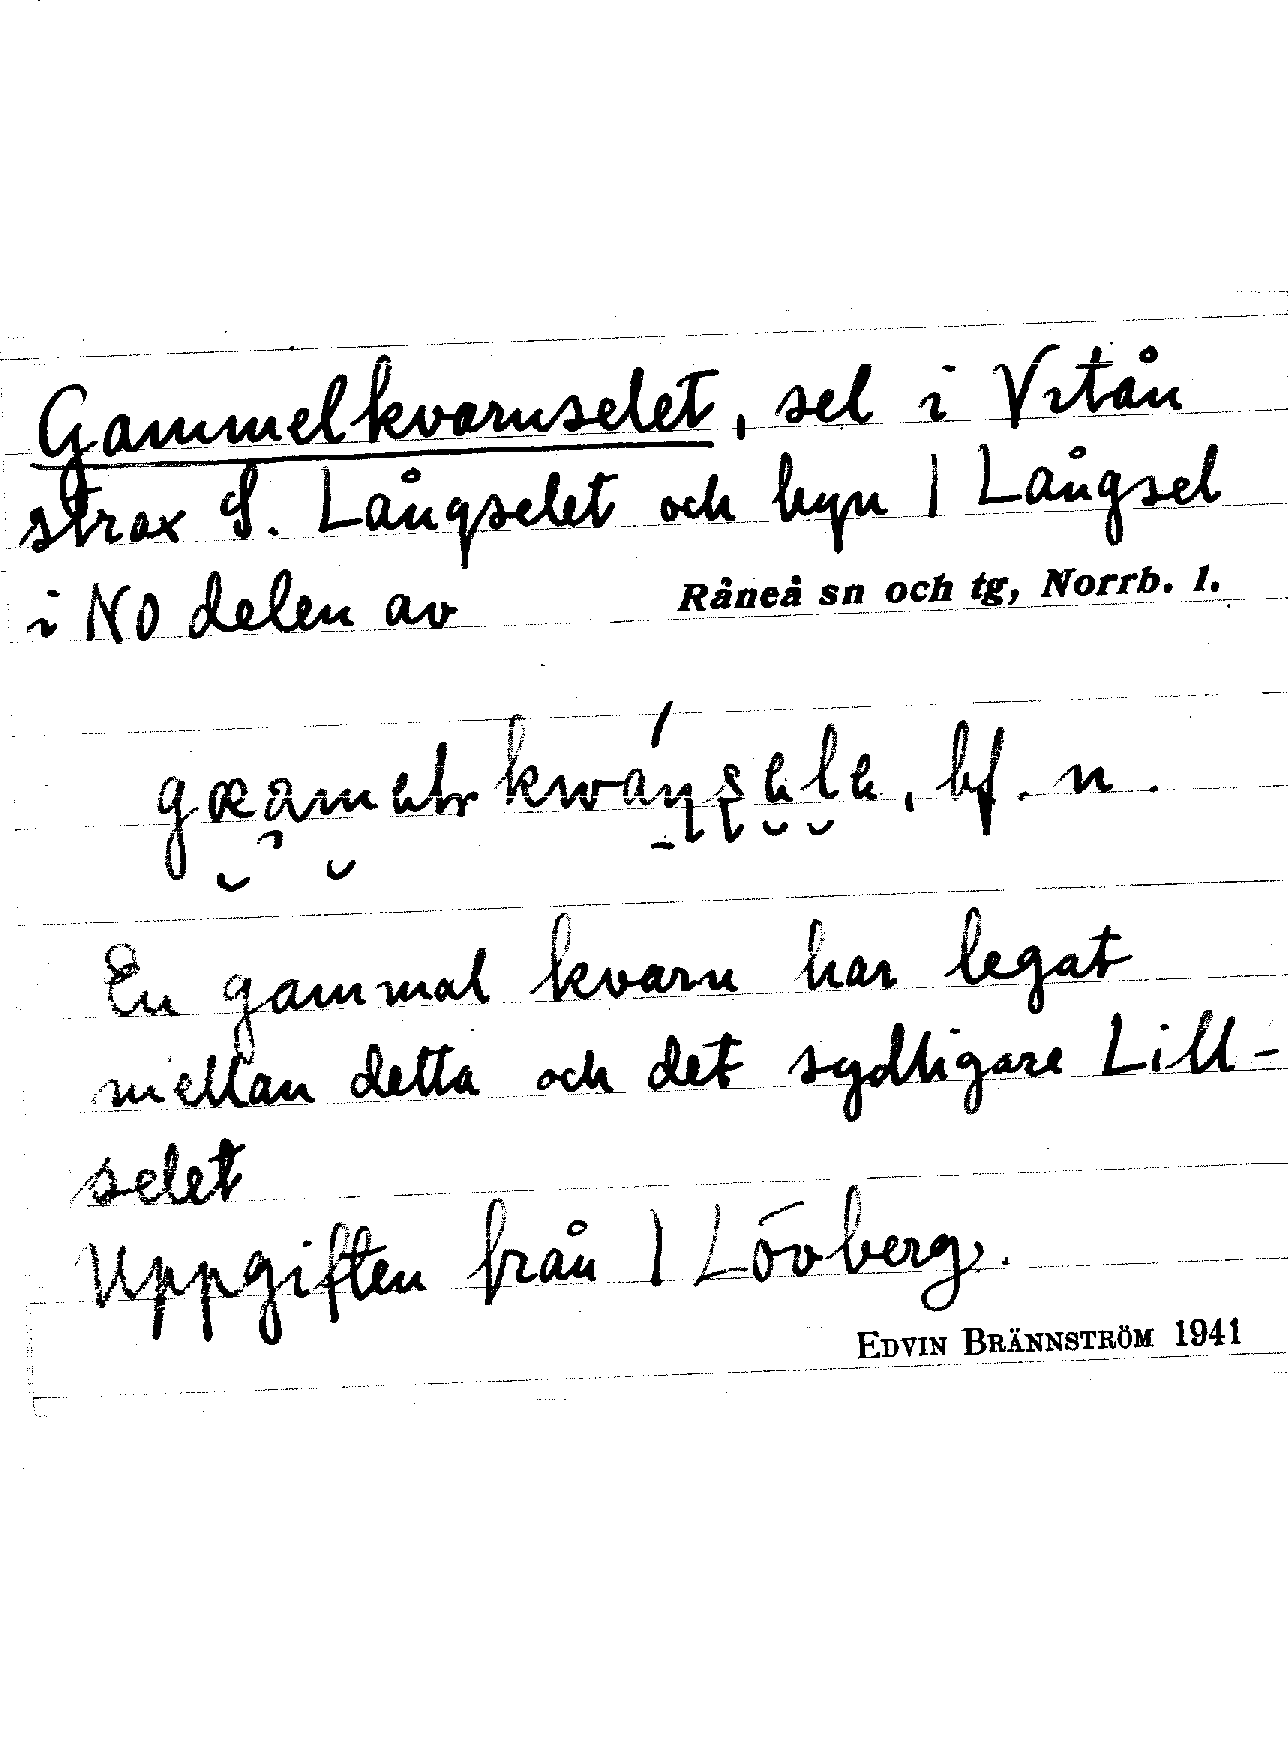 Gammelkvarnselet, sel i Vitån
strax S. Långselet och byn 1 Långsel
i NO delen av Råneå sn och tg, Norrb. l.
bf. n.
En gammal kvarn har legat
mellan detta och det sydligare Lill-
selet
Uppgiften från 1 Lövberg.
EDVIN BRÄNNSTRÖM 1941